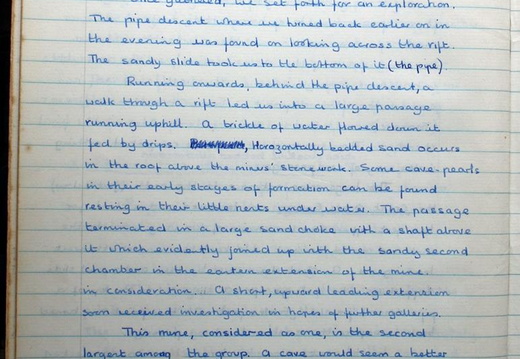 we set forth for an exploration.
The pipe descent where we turned back earlier on in
the evening was found on looking across the rift.
The sandy slide took us to the bottom of it (the pipe).
Running onwards, behind the pipe descent, a
walk through a rift led us into a large passage
running uphill. A trickle of water flowed down it
fed by drips. , Horozontally bedded sand occurs
in the roof above the miners' stonework. Some cave-pearls
in their early stages of formation can be found
resting in their little nests under water. The passage
terminated in a large sand choke with a shaft above
it which evidently joined up with the sandy second
chamber in the eastern extension of the mine.
in consideration... A short, upward leading extension
soon received investigation in hopes of further galleries.
This mine, considered as one, is the second
largest among the group. A cave would seem a better